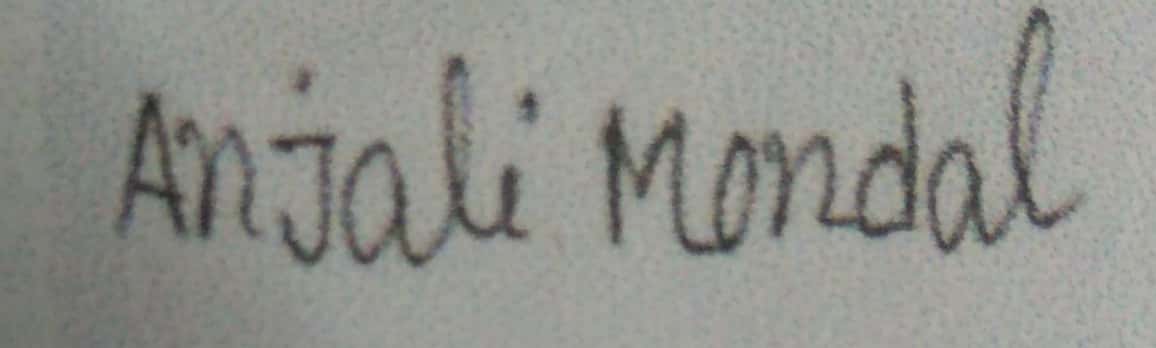 Anjali Mondal